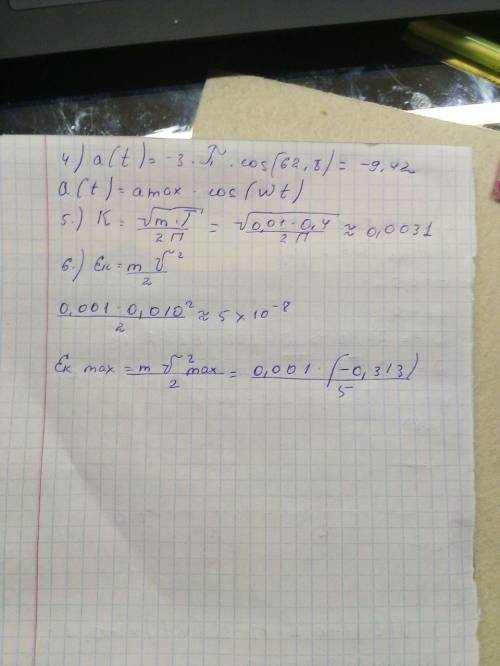 4.) a(t) = -3 · π · cos(62,8) = -9,42
a(t) = amax · cos(wt)
5.) K = √(m·T)/2π = √(0,01·0,4)/2π ≈ 0,0031
6.) Eк = mv²/2
0,001·0,010²/2 ≈ 5 × 10⁻⁸
Eк max = mv²max/2 = 0,001·(-0,313)/5